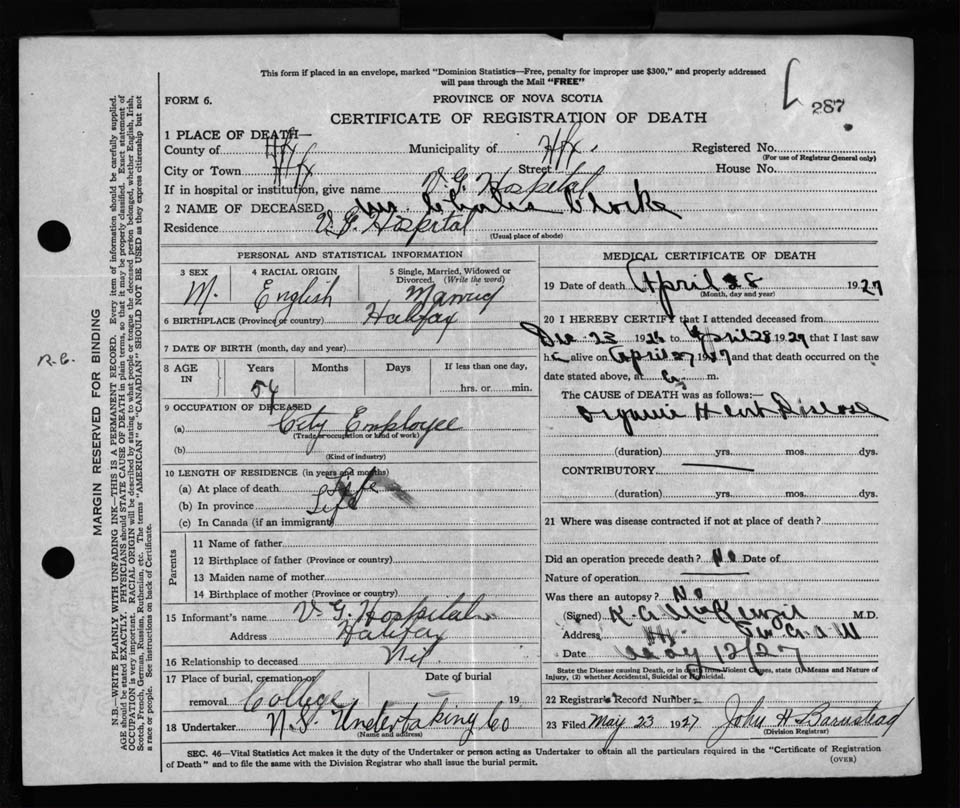 This form if placed in an envelope, marked "Dominion Statistics—Free, penalty for improper use $300," and properly addressed
will pass through the Mail "FREE"
287
FORM 6.
PROVINCE OF NOVA SCOTIA
CERTIFICATE OF REGISTRATION OF DEATH
1 PLACE OF DEATH—
County of Hfx Municipality of Hfx. Registered No.
(For use of Registrar General only)
City or Town Hfx Street House No.
If in hospital or institution, give name V.G. Hospital
2 NAME OF DECEASED Charles Clarke
Residence V.G. Hospital
(Usual place of abode)
PERSONAL AND STATISTICAL INFORMATION
3 SEX 4 RACIAL ORIGIN 5 Single, Married, Widowed or
Divorced. (Write the word)
M. English Married
6 BIRTHPLACE (Province or country) Halifax
7 DATE OF BIRTH (month, day and year)
8 AGE IN Years Months Days If less than one day,
54 hrs. or min.
9 OCCUPATION OF DECEASED
(a) City Employee
(Trade or occupation or kind of work)
(b)
(Kind of industry)
10 LENGTH OF RESIDENCE (in years and months)
(a) At place of death Life
(b) In province Life
(c) In Canada (if an immigrant)
Parents
11 Name of father
12 Birthplace of father (Province or country)
13 Maiden name of mother
14 Birthplace of mother (Province or country)
15 Informant's name V G. Hospital
Address Halifax
16 Relationship to deceased Nil
17 Place of burial, cremation or Date of burial
removal College 19
18 Undertaker N.S. Undertaking Co
(Name and address)
MEDICAL CERTIFICATE OF DEATH
19 Date of death April 28 1927
(Month, day and year)
20 I HEREBY CERTIFY that I attended deceased from
Dec 23 1926 to April 28 1927 that I last saw
h alive on April 27 1927 and that death occurred on the
date stated above, at m.
The CAUSE OF DEATH was as follows:
Organic Heart Disease
(duration) yrs. mos. dys.
CONTRIBUTORY
(duration) yrs. mos. dys.
21 Where was disease contracted if not at place of death?
Did an operation precede death? No Date of
Nature of operation
Was there an autopsy? No
(Signed) K. A. McKenzie M.D.
Address
Date May 12/27
State the Disease causing Death, or in death from Violent Causes, state (1) Means and Nature of
Injury, (2) whether Accidental, Suicidal or Homicidal.
22 Registrar's Record Number
23 Filed May 23 1927 John H Barnstead
(Division Registrar)
SEC. 46—Vital Statistics Act makes it the duty of the Undertaker or person acting as Undertaker to obtain all the particulars required in the "Certificate of Registration
of Death" and to file the same with the Division Registrar who shall issue the burial permit.
(OVER)
R.C.
MARGIN RESERVED FOR BINDING
N.B.—WRITE PLAINLY WITH UNFADING INK—THIS IS A PERMANENT RECORD. Every item of information should be carefully supplied.
AGE should be stated EXACTLY. PHYSICIANS should STATE CAUSE OF DEATH in plain terms, so that it may be properly classified. Exact statement of
OCCUPATION is very important. RACIAL ORIGIN will be described by stating to what people or tongue the deceased person belonged, whether English, Irish,
Scotch, French, German, Russian, Ruthenian, etc. The terms "AMERICAN" or "CANADIAN" SHOULD NOT BE USED as they express citizenship but not
a race or people. See instructions on back of Certificate.